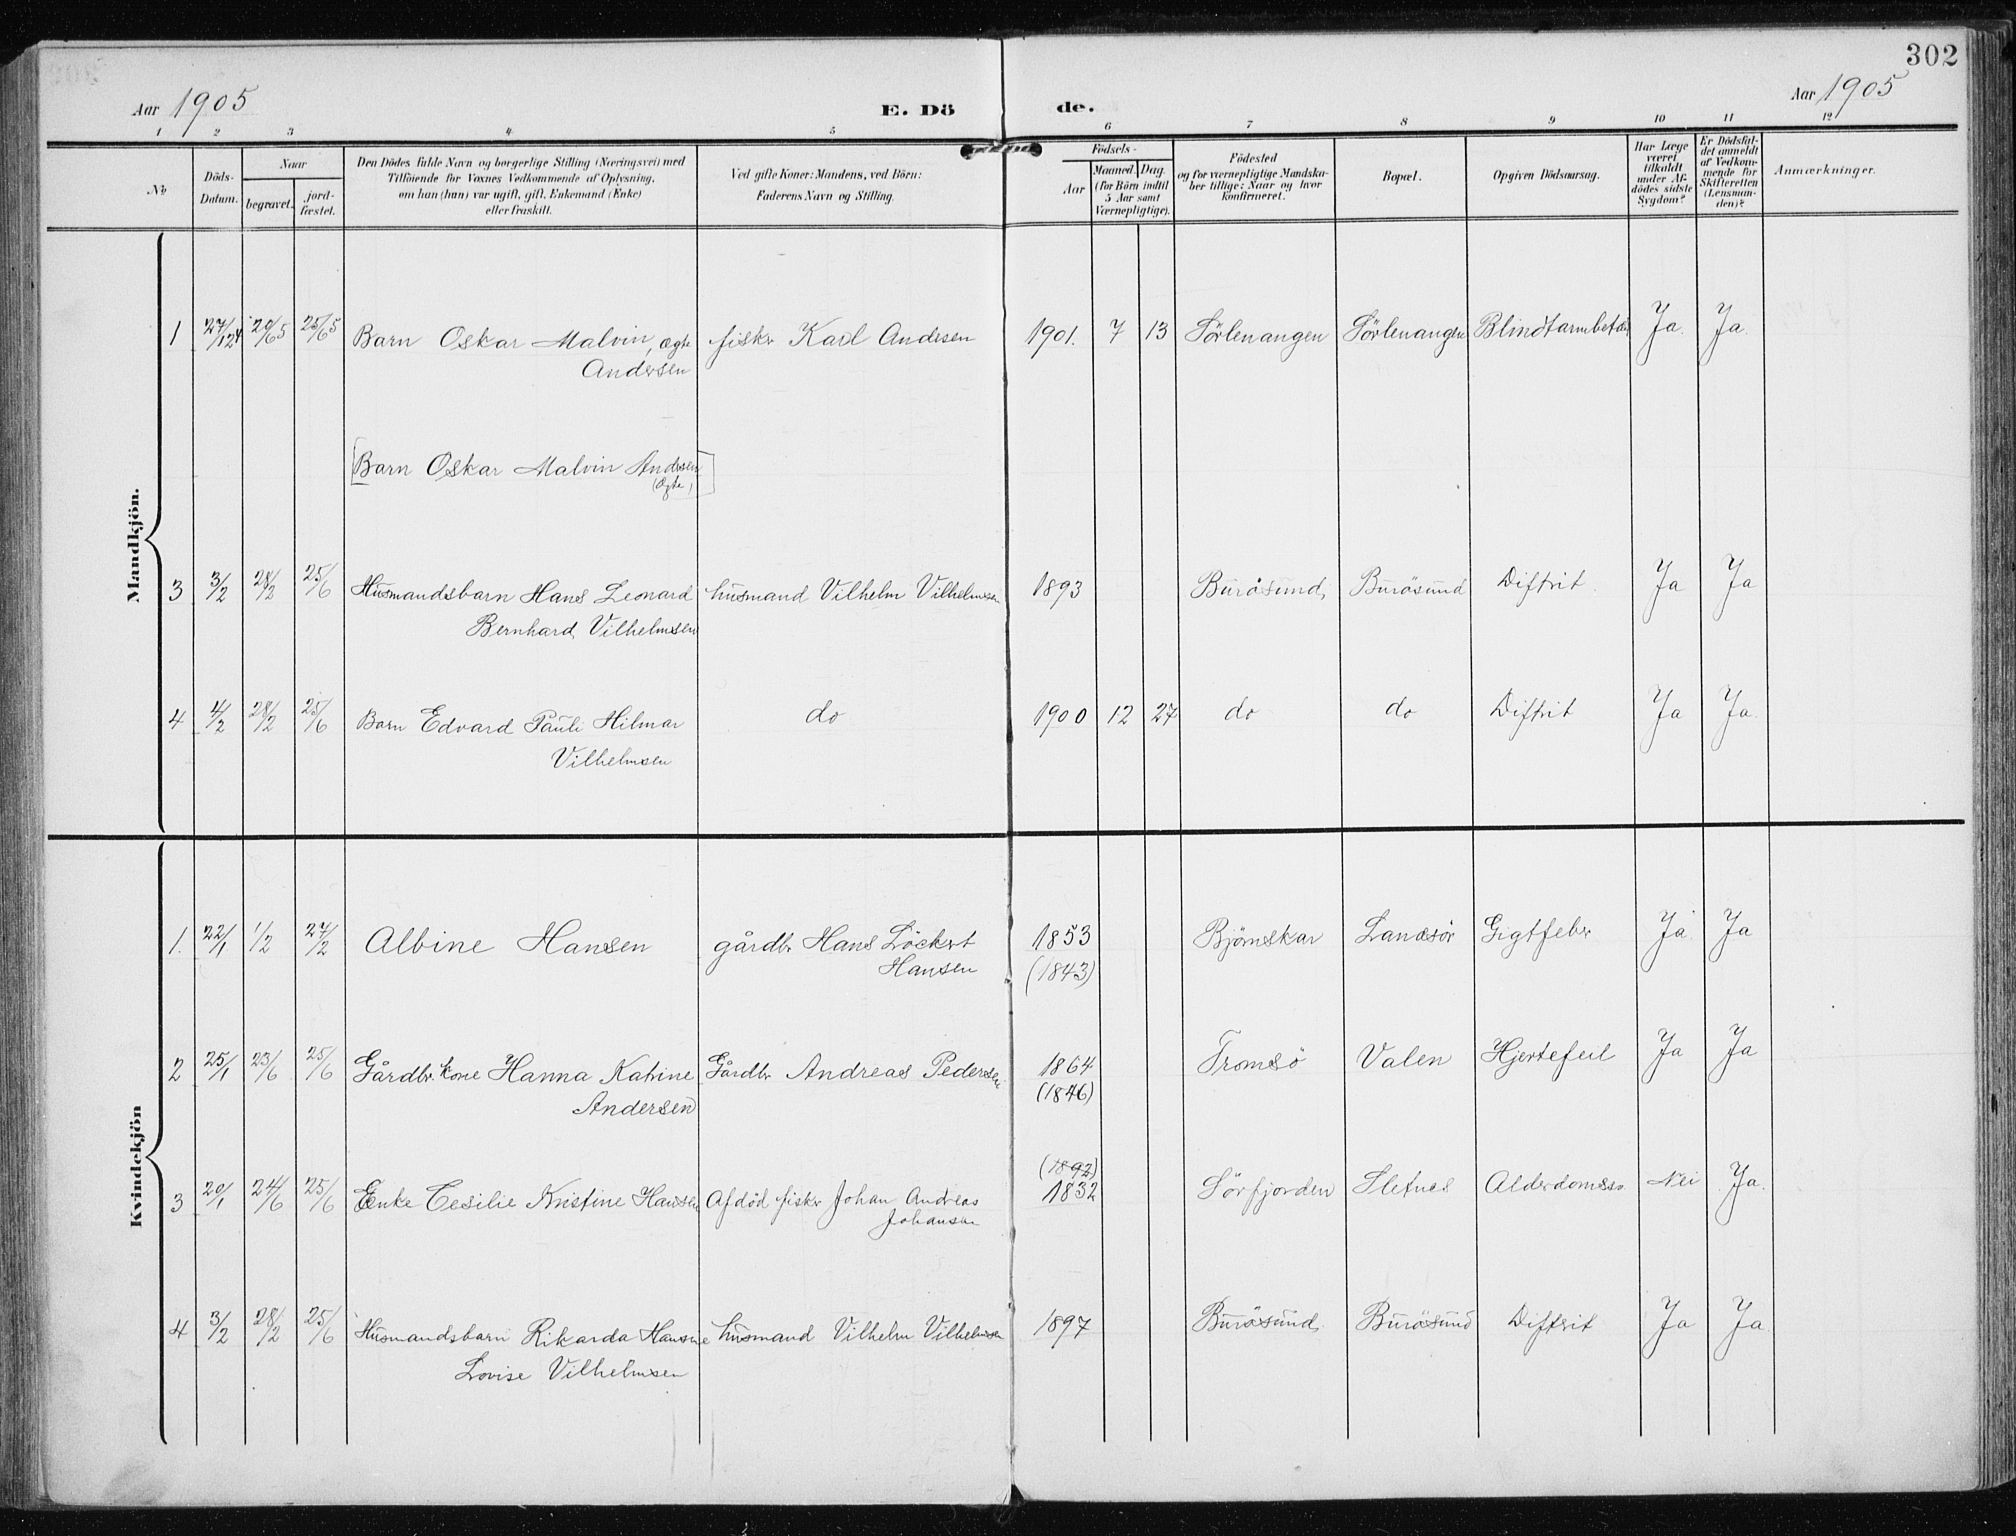 302
Aar 1905
E. Dö de.
Aar 1905
1 2 3 4 5 6 7 8 9 10 11 12
No
Döds-Datum.
Naar
begravet. jord-fæstet.
Den Dödes fulde Navn og borgerlige Stilling (Næringsvei) med
Tilföiende for Voxnes Vedkommende af Oplysning,
om han (hun) var ugift, gift, Enkemand (Enke)
eller fraskilt.
Ved gifte Koner: Mandens, ved Börn:
Faderens Navn og Stilling.
Födsels-
Aar
Maaned. Dag.
(for Börn indtil
5 Aar samt
Værnepligtige).
Födested
og for værnepligtige Mandska-
ber tillige: Naar og hvor
konfirmeret.
Bopæl.
Opgiven Dödsaarsag.
Har Læge
været
tilkaldt
under Af-
dödes sidste
Sygdom?
Er Dödsfal-
det anmeldt
af Vedkom-
mende for
Skifteretten
(Lensman-
den)?
Anmærkninger.
Mandkjön.
1 27/12 4 20/6 5 25/6 5 Barn Oskar Malvin, ægte fisker Karl Andersen 1901. 7 13 Sörlenangen Sörlenangen Blindtarmbet Ja. Ja.
Andersen
[Barn Oskar Malvin Andersen]
(ægte)
3 3/2 28/2 25/6 Husmandsbarn Hans Leonard husmand Vilhelm Vilhelmsen 1893 Burösund, Burösund Diftrit. Ja Ja
Bernhard Vilhelmsen
4 4/2 28/2 25/6 Barn Edvard Pauli Hilmar do 1900 12 27 do do Diftrit Ja Ja.
Vilhelmsen
Kvindekjön
1. 22/1 1/2 27/2 Albine Hansen gårdbr Hans Löckert 1853 Björnskar Landsör Gigtfeber Ja Ja
Hansen (1843)
2 25/1 23/6 25/6 Gårdbr. kone Hanna Katrine Gårdbr Andreas Pedersen 1864 Tromsö Valen Hjertefeil Ja Ja
Andersen (1846)
(1892)
3 20/1 24/6 25/6 Enke Cesilie Kristine Hansen Afdöd fisker Johan Andreas 1832 Sörfjorden Sletnes Alderdomss. Nei Ja.
Johansen
4 3/2 28/2 25/6 Husmandsbarn Rikarda Hansine husmand Vilhelm Vilhelmsen 1897 Burösund. Burösund Diftrit Ja Ja.
Lovise Vilhelmsen